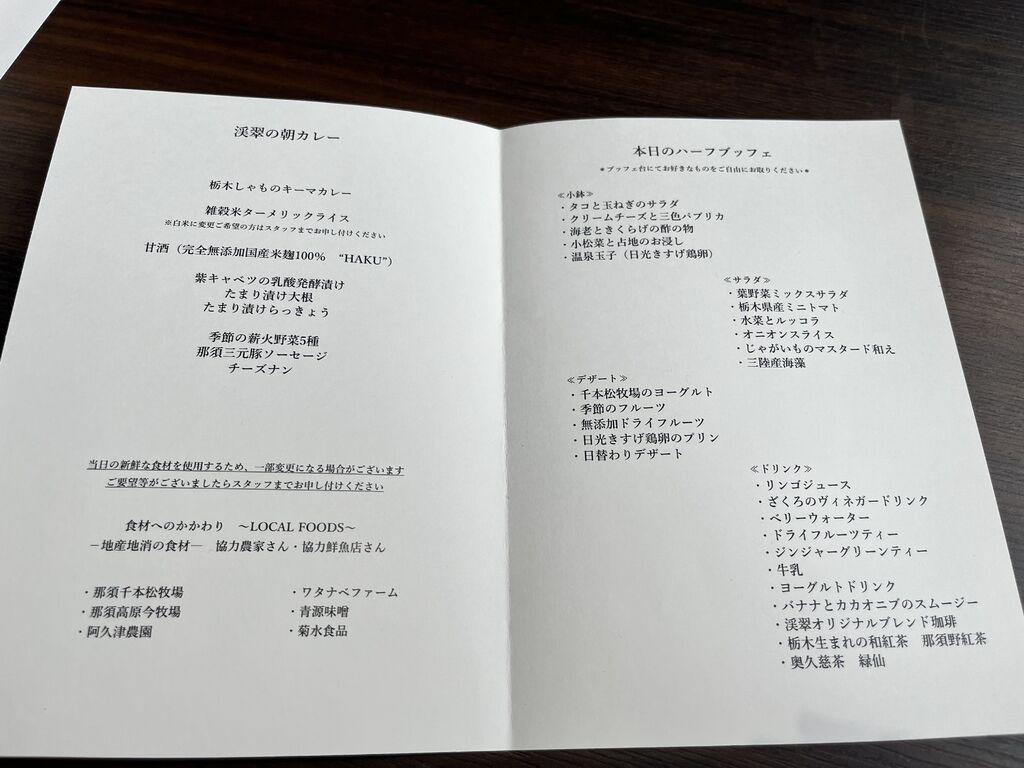 渓翠の朝カレー
栃木しゃものキーマカレー
雑穀米ターメリックライス
※白米に変更ご希望の方はスタッフまでお申し付けください
甘酒（完全無添加国産米麹100％　“HAKU”）
紫キャベツの乳酸発酵漬け
たまり漬け大根
たまり漬けらっきょう
季節の薪火野菜5種
那須三元豚ソーセージ
チーズナン
当日の新鮮な食材を使用するため、一部変更になる場合がございます
ご要望等がございましたらスタッフまでお申し付けください
食材へのかかわり　～LOCAL FOODS～
－地産地消の食材―　協力農家さん・協力鮮魚店さん
・那須千本松牧場
・那須高原今牧場
・阿久津農園
・ワタナベファーム
・青源味噌
・菊水食品
本日のハーフブッフェ
＊ブッフェ台にてお好きなものをご自由にお取りください＊
≪小鉢≫
・タコと玉ねぎのサラダ
・クリームチーズと三色パプリカ
・海老ときくらげの酢の物
・小松菜と占地のお浸し
・温泉玉子（日光きすげ鶏卵）
≪サラダ≫
・葉野菜ミックスサラダ
・栃木県産ミニトマト
・水菜とルッコラ
・オニオンスライス
・じゃがいものマスタード和え
・三陸産海藻
≪デザート≫
・千本松牧場のヨーグルト
・季節のフルーツ
・無添加ドライフルーツ
・日光きすげ鶏卵のプリン
・日替わりデザート
≪ドリンク≫
・リンゴジュース
・ざくろのヴィネガードリンク
・ベリーウォーター
・ドライフルーツティー
・ジンジャーグリーンティー
・牛乳
・ヨーグルトドリンク
・バナナとカカオニブのスムージー
・渓翠オリジナルブレンド珈琲
・栃木生まれの和紅茶　那須野紅茶
・奥久慈茶　緑仙